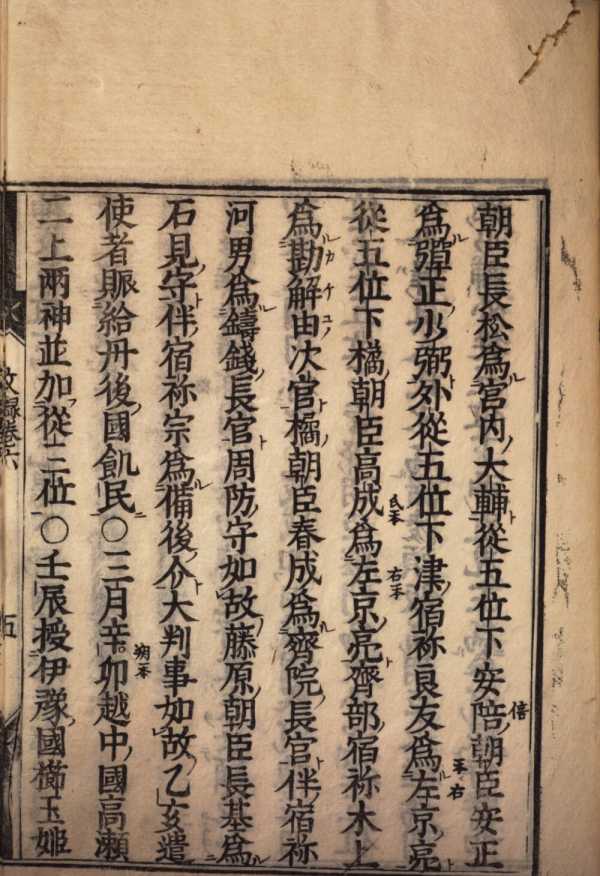 朝臣長松爲宮内大輔從五位下安陪朝臣安正
爲彈正少弼外從五位下津宿祢良友爲左京亮
從五位下橘朝臣高成爲左京亮齊部宿祢木上
爲勘解由次官橘朝臣春成爲齊院長官伴宿祢
河男爲鑄錢長官周防守如故藤原朝臣長基爲
石見守伴宿祢宗爲備後介大判事如故乙亥遣
使者賑給丹後國飢民〇三月辛卯越中國高瀬
二上兩神並加從三位〇壬辰授伊豫國櫛玉姫